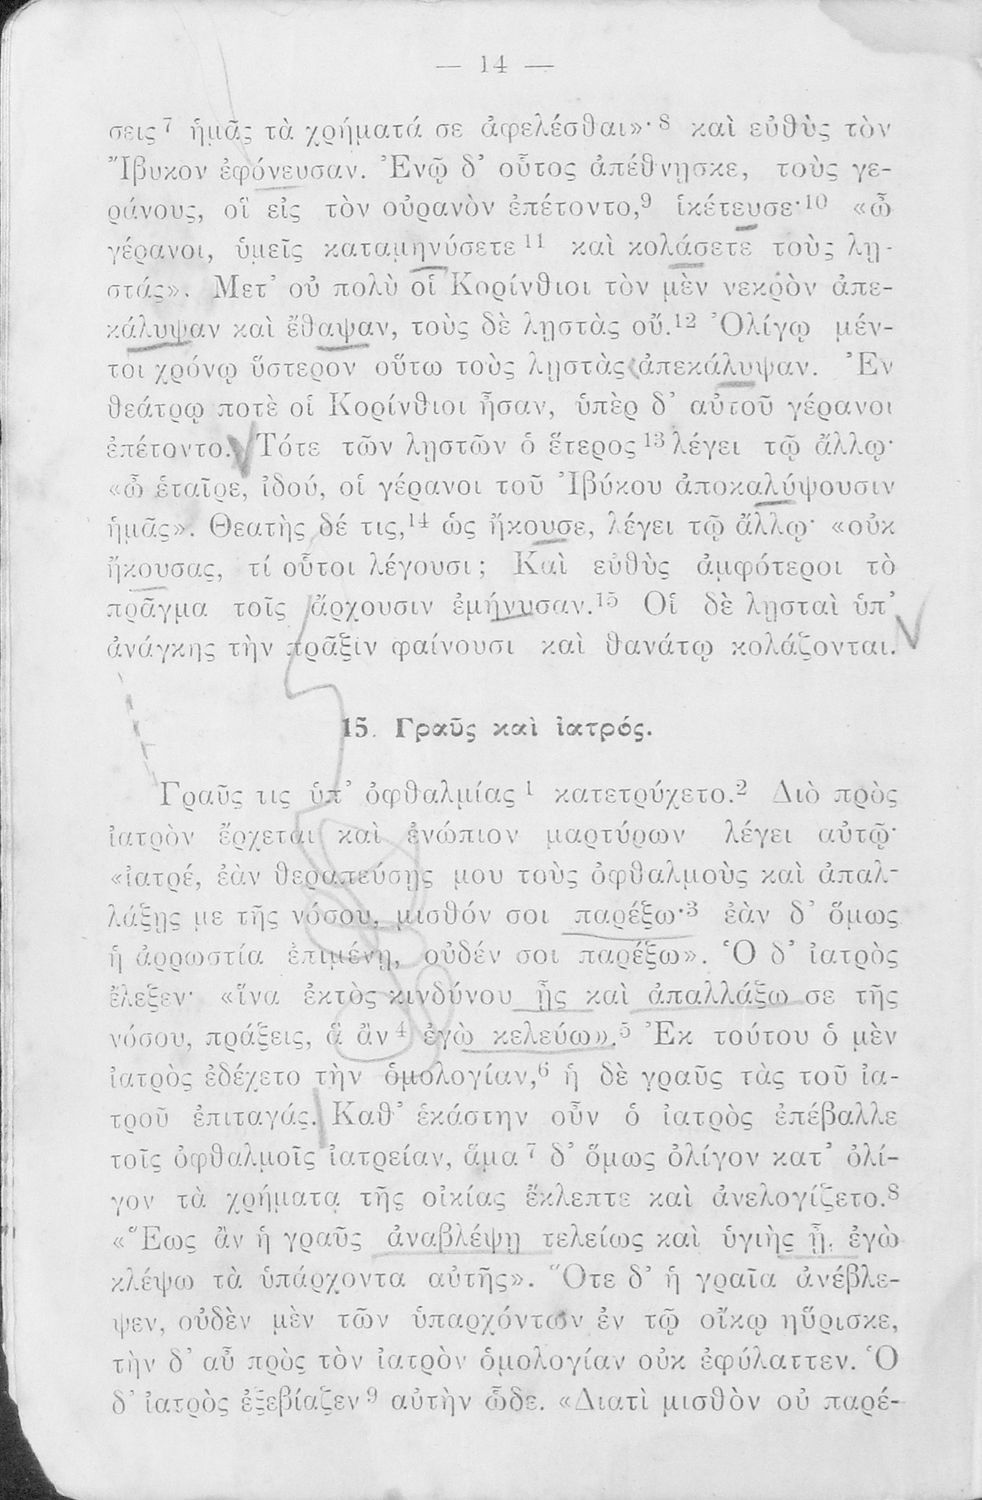 — 14 —
σεις⁷ ἡμᾶς τὰ χρήματά σε ἀφελέσθαι»·⁸ καὶ εὐθὺς τὸν
Ἴβυκον ἐφόνευσαν. Ἐνῷ δ’ οὗτος ἀπέθνησκε, τοὺς γε-
ράνους, οἳ εἰς τὸν οὐρανὸν ἐπέτοντο,⁹ ἱκέτευσε·¹⁰ «ὦ
γέρανοι, ὑμεῖς καταμηνύσετε¹¹ καὶ κολάσετε τοὺς λῃ-
στάς». Μετ’ οὐ πολὺ οἱ Κορίνθιοι τὸν μὲν νεκρὸν ἀπε-
κάλυψαν καὶ ἔθαψαν, τοὺς δὲ λῃστὰς οὔ.¹² Ὀλίγῳ μέν-
τοι χρόνῳ ὕστερον οὕτω τοὺς λῃστὰς ἀπεκάλυψαν. Ἐν
θεάτρῳ ποτὲ οἱ Κορίνθιοι ἦσαν, ὑπὲρ δ’ αὐτοῦ γέρανοι
ἐπέτοντο. Τότε τῶν λῃστῶν ὁ ἕτερος¹³ λέγει τῷ ἄλλῳ·
«ὦ ἑταῖρε, ἰδού, οἱ γέρανοι τοῦ Ἰβύκου ἀποκαλύψουσιν
ἡμᾶς». Θεατὴς δέ τις,¹⁴ ὡς ἤκουσε, λέγει τῷ ἄλλῳ· «οὐκ
ἤκουσας, τί οὗτοι λέγουσι; Καὶ εὐθὺς ἀμφότεροι τὸ
πρᾶγμα τοῖς ἄρχουσιν ἐμήνυσαν.¹⁵ Οἱ δὲ λῃσταὶ ὑπ’
ἀνάγκης τὴν πρᾶξιν φαίνουσι καὶ θανάτῳ κολάζονται.
15. Γραῦς καὶ ἰατρός.
Γραῦς τις ὑπ’ ὀφθαλμίας¹ κατετρύχετο.² Διὸ πρὸς
ἰατρὸν ἔρχεται καὶ ἐνώπιον μαρτύρων λέγει αὐτῷ·
«ἰατρέ, ἐὰν θεραπεύσῃς μου τοὺς ὀφθαλμοὺς καὶ ἀπαλ-
λάξῃς με τῆς νόσου, μισθόν σοι παρέξω·³ ἐὰν δ’ ὅμως
ἡ ἀρρωστία ἐπιμένῃ, οὐδέν σοι παρέξω». Ὁ δ’ ἰατρὸς
ἔλεξεν· «ἵνα ἐκτὸς κινδύνου ᾖς καὶ ἀπαλλάξω σε τῆς
νόσου, πράξεις, ἃ ἂν⁴ ἐγὼ κελεύω».⁵ Ἐκ τούτου ὁ μὲν
ἰατρὸς ἐδέχετο τὴν ὁμολογίαν,⁶ ἡ δὲ γραῦς τὰς τοῦ ἰα-
τροῦ ἐπιταγάς. Καθ’ ἑκάστην οὖν ὁ ἰατρὸς ἐπέβαλλε
τοῖς ὀφθαλμοῖς ἰατρείαν, ἅμα⁷ δ’ ὅμως ὀλίγον κατ’ ὀλί-
γον τὰ χρήματα τῆς οἰκίας ἔκλεπτε καὶ ἀνελογίζετο.⁸
«Ἕως ἂν ἡ γραῦς ἀναβλέψῃ τελείως καὶ ὑγιὴς ᾖ, ἐγὼ
κλέψω τὰ ὑπάρχοντα αὐτῆς». Ὅτε δ’ ἡ γραῖα ἀνέβλε-
ψεν, οὐδὲν μὲν τῶν ὑπαρχόντων ἐν τῷ οἴκῳ ηὕρισκε,
τὴν δ’ αὖ πρὸς τὸν ἰατρὸν ὁμολογίαν οὐκ ἐφύλαττεν. Ὁ
δ’ ἰατρὸς ἐξεβίαζεν⁹ αὐτὴν ὧδε. «Διατὶ μισθὸν οὐ παρέ-